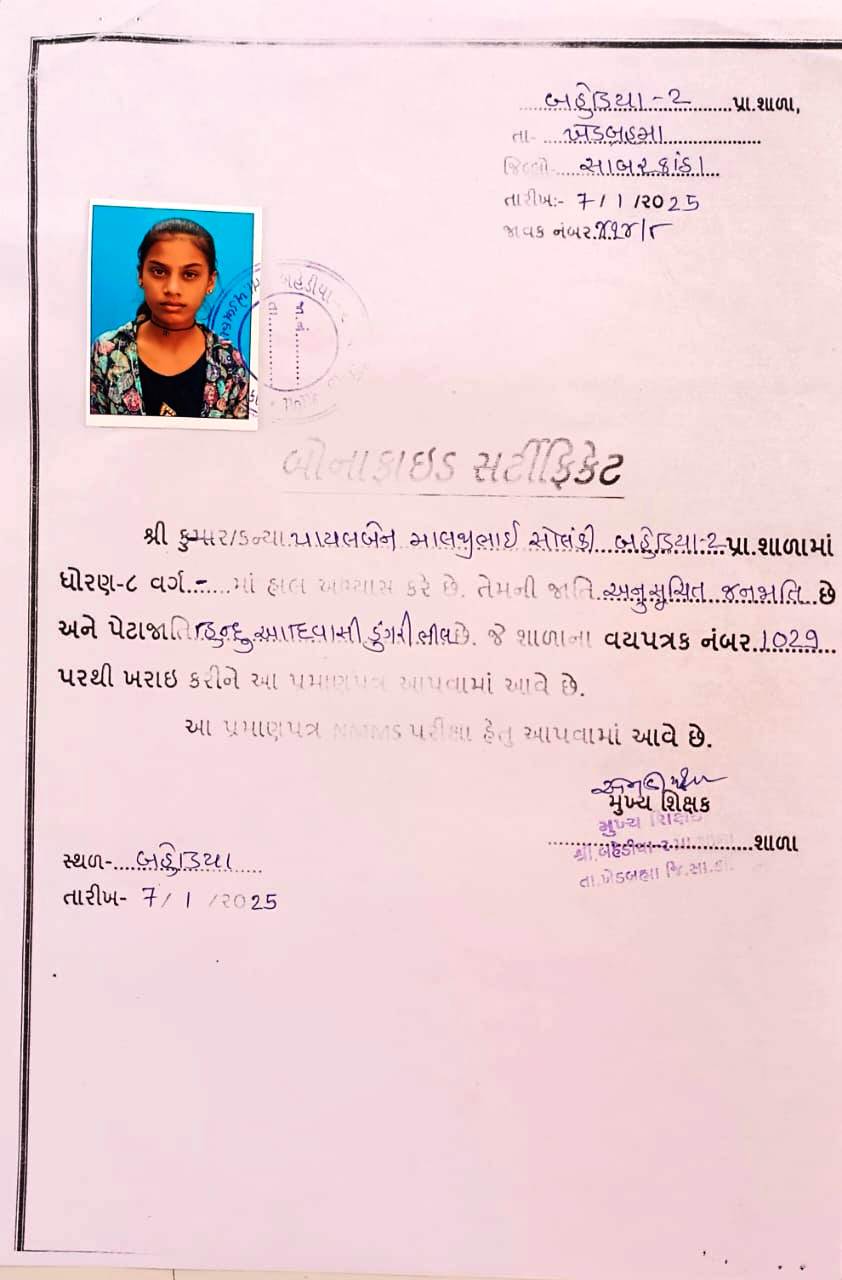 બહેડિયા - ૨ પ્રા.શાળા,
તા- ખેડબ્રહ્મા
જિલ્લો- સાબરકાંઠા
તારીખ:- 7/1/2025
જાવક નંબર.
બહેડીયા
બોનાફાઇડ સર્ટીફિકેટ
શ્રી કુમાર/કન્યા પાયલબેન માલજીભાઈ સોલંકી બહેડિયા-2 પ્રા.શાળામાં
ધોરણ-૮ વર્ગ - માં હાલ અભ્યાસ કરે છે. તેમની જાતિ અનુસૂચિત જનજાતિ છે
અને પેટાજાતિ હિન્દુ આદિવાસી ડુંગરી ભીલ છે. જે શાળાના વયપત્રક નંબર 1029
પરથી ખરાઇ કરીને આ પ્રમાણપત્ર આપવામાં આવે છે.
આ પ્રમાણપત્ર NMMS પરીક્ષા હેતુ આપવામાં આવે છે.
મુખ્ય શિક્ષક
મુખ્ય શિક્ષક
શાળા
શ્રી.બહેડીયા-૨ પ્રા.શાળા
તા.ખેડબ્રહ્મા જિ.સા.કાં.
સ્થળ- બહેડિયા
તારીખ- 7/1/2025